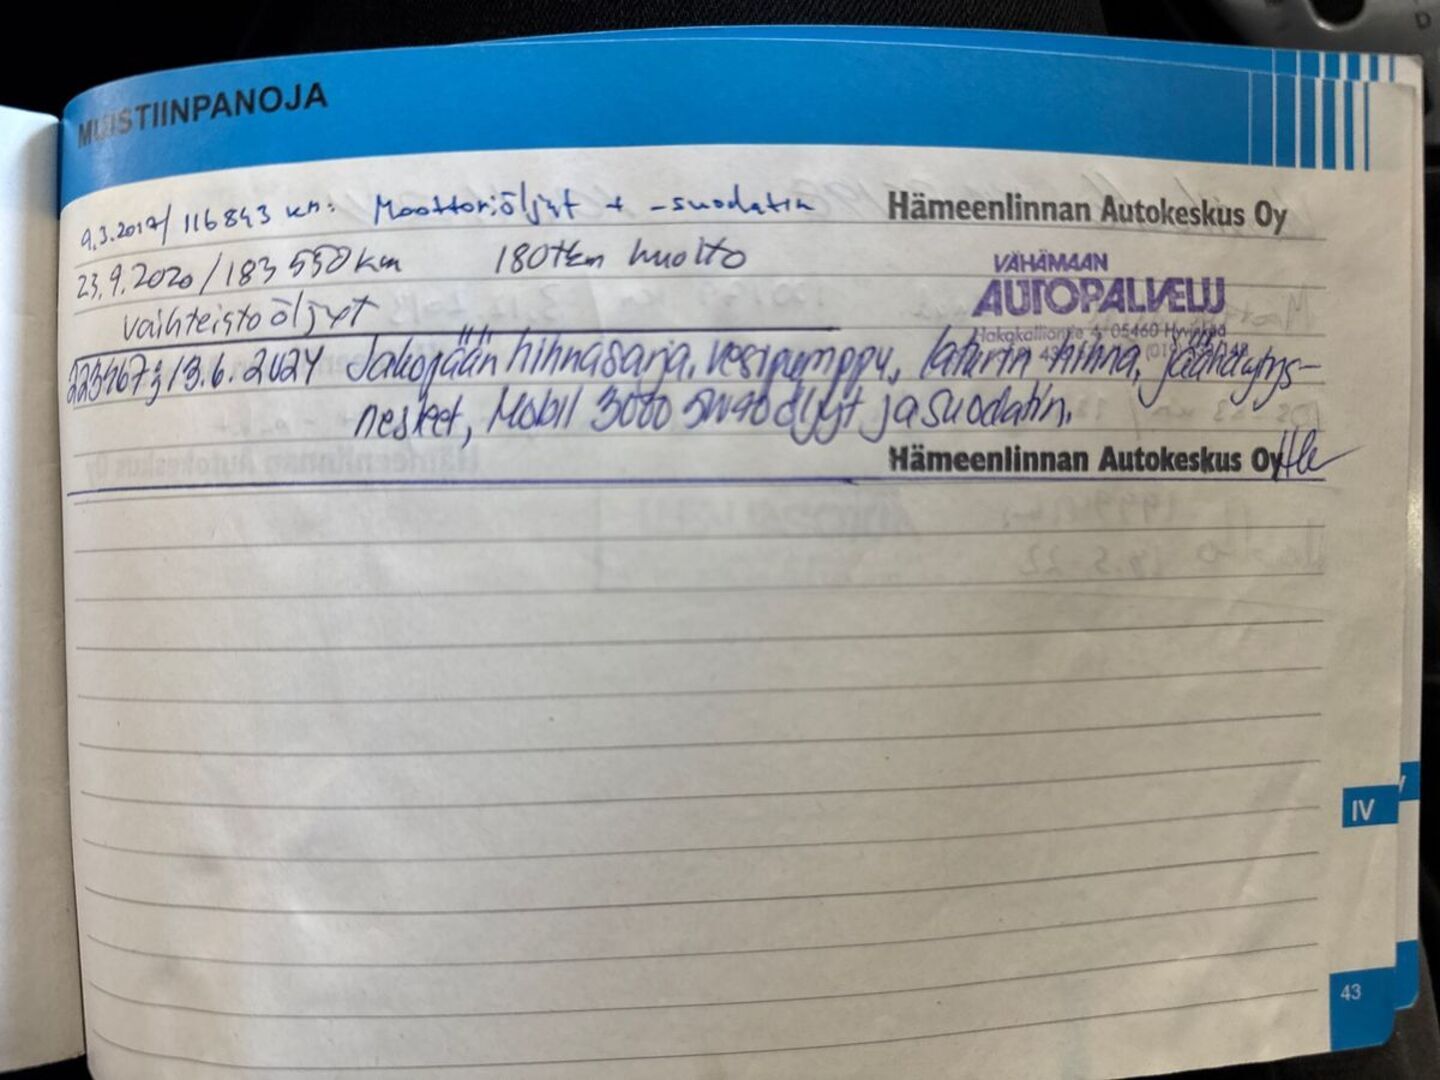 MUISTIINPANOJA
9.3.2017/ 116843 km: Moottoriöljyt + -suodatin Hämeenlinnan Autokeskus Oy
23.9.2020/183 550 km 180tkm huolto
VÄHÄMAAN
AUTOPALVELU
Hakakalliontie 4, 05460 Hyvinkää
vaihteistoöljyt
223467; 13.6.2024 Jakopään hihnasarja, vesipumppu, laturin hihna, jäähdytys-
nesteet, Mobil 3000 5W40 öljyt ja suodatin.
Hämeenlinnan Autokeskus Oy
IV
43